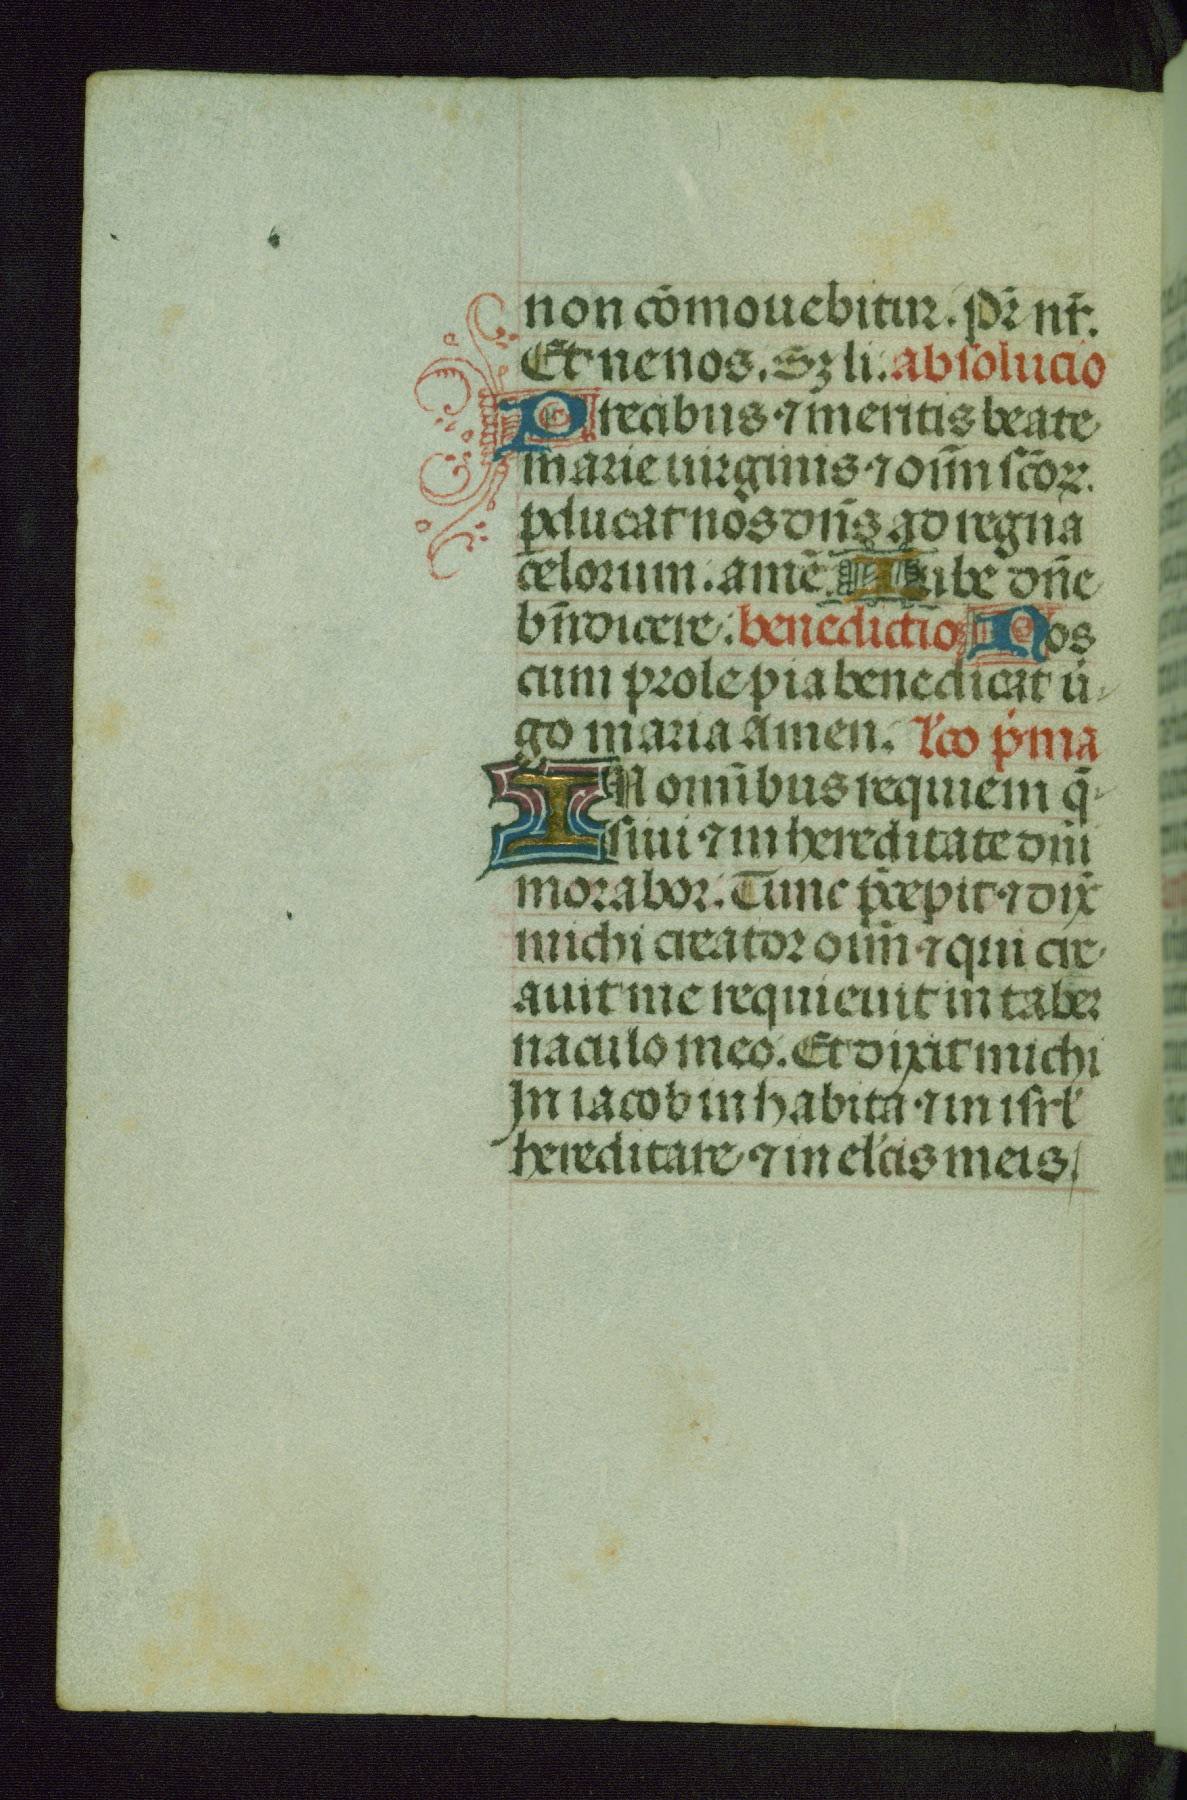 non cōmouebitur. Pr̄ nr̄.
Et nenos. Sz li. absolucio
Precibus ⁊ meritis beate
marie uirginis ⁊ oīm scōꝝ.
ꝑducat nos dn̄s ad regna
celorum. amē. Iube dn̄e
bn̄dicere. benedictio Nos
cum prole pia benedicat ú-
go maria Amen. lc̄o p̄ma
IN omībus requiem q̄-
siui ⁊ in hereditate dn̄i
morabor. Tunc p̄cepit ⁊ dix̄
michi creator oīm ⁊ qui cre-
auit me requieuit in taber
naculo meo. Et dixit michi
In iacob inhabita ⁊ in isrl̄
hereditare ⁊ in el̄cis meis